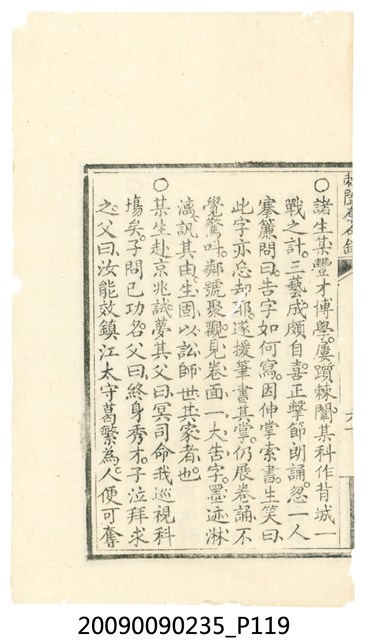 ○諸生某豐才博學屢躓棘闈某科作背城一
戰之計三藝成頗自喜正擊節朗誦忽一人
搴簾問曰告字如何寫因伸掌索書生笑曰
此字亦忘却耶遂援筆書其掌仍展卷誦不
覺驚叫鄰號聚觀見卷面一大告字墨迹淋
漓訊其由生固以訟師世其家者也
○某生赴京兆試夢其父曰冥司命我巡視科
場矣子問已功名父曰終身秀才子泣拜求
之父曰汝能效鎮江太守葛繁為人便可奪
20090090235_P119